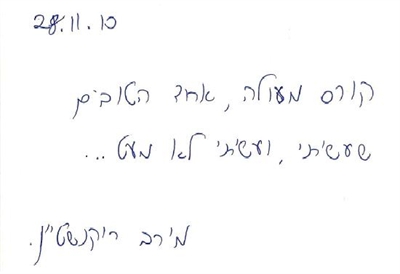 28.11.10
קורס מעולה, אחד הטובים
שעשיתי, ועשיתי לא מעט...
מירב ריקנשטיין.